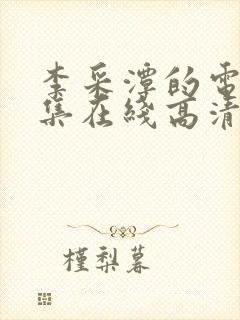 李采潭的電
集在綫高清
槿梨暮